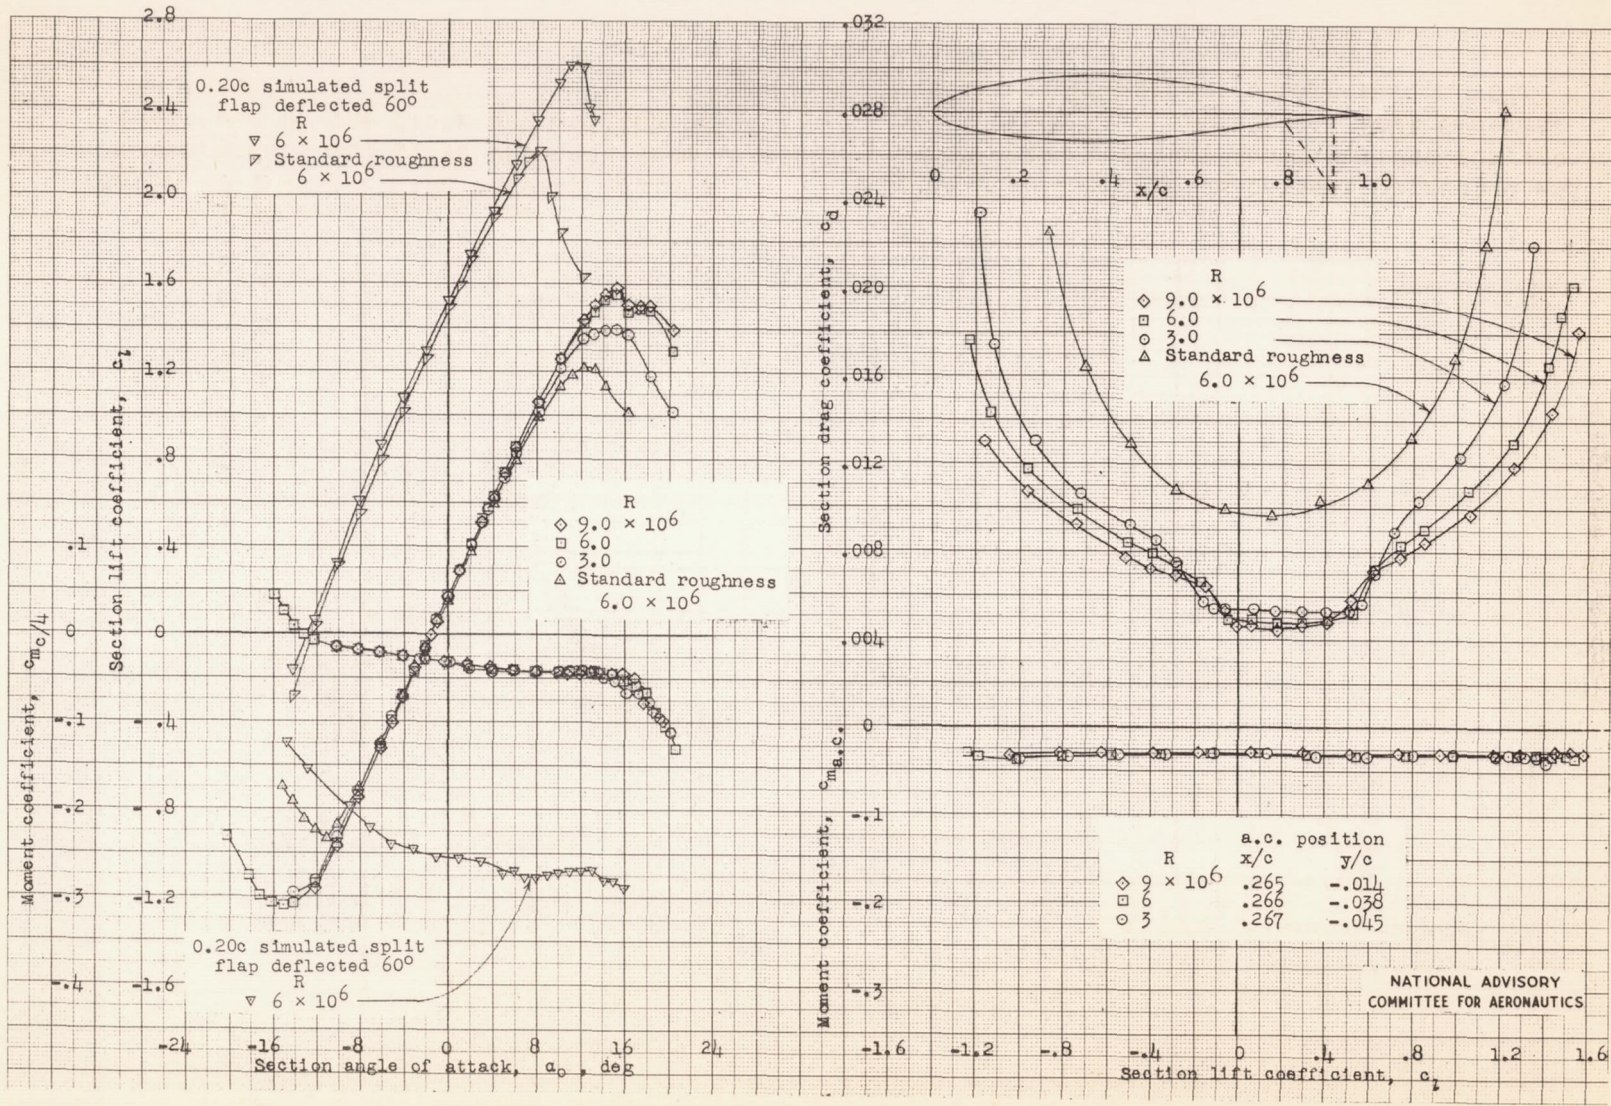 2.8
2.4
2.0
1.6
1.2
.8
.4
0
-.4
-.8
-1.2
-1.6
.1
0
-.1
-.2
-.3
-.4
Section lift coefficient, c_l
Moment coefficient, c_mc/4
0.20c simulated split
flap deflected 60°
R
▽ 6 × 10⁶
Standard roughness
6 × 10⁶
R
◇ 9.0 × 10⁶
□ 6.0
○ 3.0
△ Standard roughness
6.0 × 10⁶
0.20c simulated split
flap deflected 60°
R
▽ 6 × 10⁶
-24 -16 -8 0 8 16 24
Section angle of attack, α₀, deg
.032
.028
.024
.020
.016
.012
.008
.004
0
-.1
-.2
-.3
Section drag coefficient, c_d
Moment coefficient, c_ma.c.
0 .2 .4 .6 .8 1.0
x/c
R
◇ 9.0 × 10⁶
□ 6.0
○ 3.0
△ Standard roughness
6.0 × 10⁶
a.c. position
R x/c y/c
◇ 9 × 10⁶ .265 -.014
□ 6 .266 -.038
○ 3 .267 -.045
NATIONAL ADVISORY
COMMITTEE FOR AERONAUTICS
-1.6 -1.2 -.8 -.4 0 .4 .8 1.2 1.6
Section lift coefficient, c_l